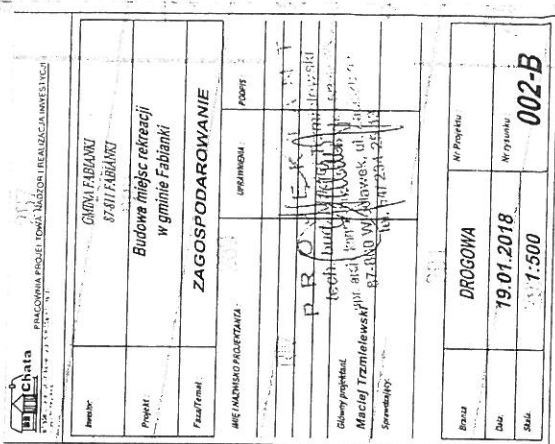 Chata
PRACOWNIA PROJEKTOWA NADZÓR I REALIZACJA INWESTYCJI
Inwestor:
GMINA FABIANKI
87-811 FABIANKI
Projekt:
Budowa miejsc rekreacji
w gminie Fabianki
Faza/Temat:
ZAGOSPODAROWANIE
IMIĘ I NAZWISKO PROJEKTANTA:
UPRAWNIENIA:
PODPIS
PROJEKTANT
tech. bud.
Główny projektant:
Maciej Trzmielewski
upr.
87-800 Włocławek, ul.
Sprawdzający:
tel.
Branża
DROGOWA
Nr Projektu:
Data:
19.01.2018
Nr rysunku:
002-B
Skala:
1:500